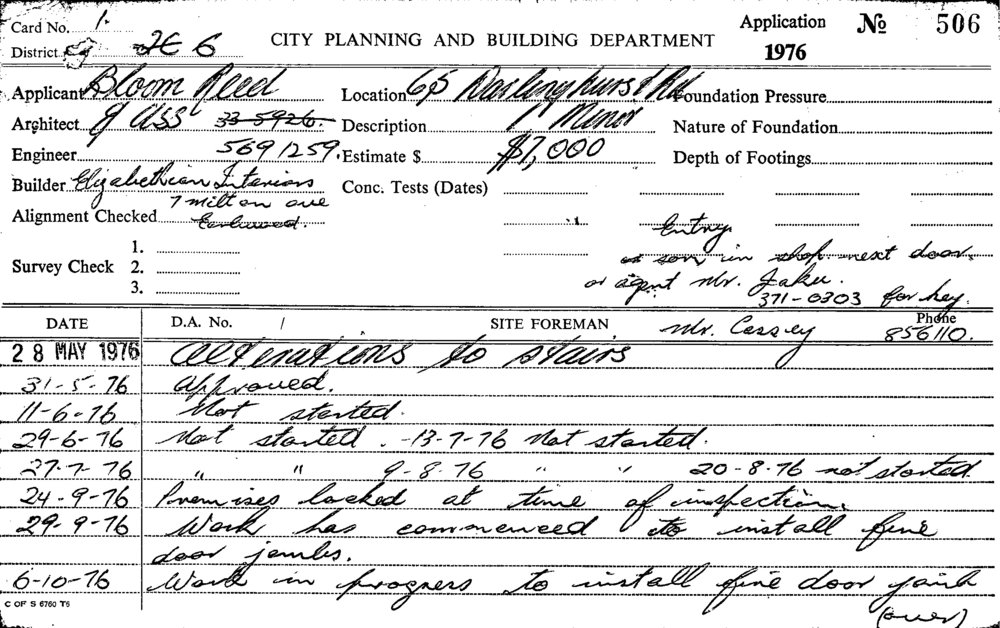 Card No. 1.
District 2E6
CITY PLANNING AND BUILDING DEPARTMENT
Application No 506
1976
Applicant Bloom Reed
Location 65 Darlinghurst Rd
Foundation Pressure
Architect & ASS 33-5926.
Description 1 Minor
Nature of Foundation
Engineer 5691259.
Estimate $ $7,000
Depth of Footings
Builder Elizabethian Interiors
Conc. Tests (Dates)
7 Milton ave
Alignment Checked Earlwood.
Entry
Survey Check 1.
2.
3.
son in shop next door.
or agent Mr. Jaku.
371-0303 for key.
DATE
D.A. No. /
SITE FOREMAN Mr. Cassey
Phone 856110.
28 MAY 1976 Alterations to stairs
31-5-76 Approved.
11-6-76 Not started.
29-6-76 Not started. -13-7-76 Not started.
27-7-76 " " 9-8-76 " " 20-8-76 not started.
24-9-76 Premises locked at time of inspection.
29-9-76 Work has commenced to install fire
door jambs.
6-10-76 Work in progress to install fire door jamb
(over)
C OF S 6760 T6